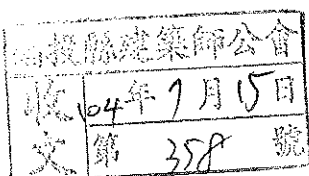 南投縣建築師公會
收文
104年9月15日
第 358 號